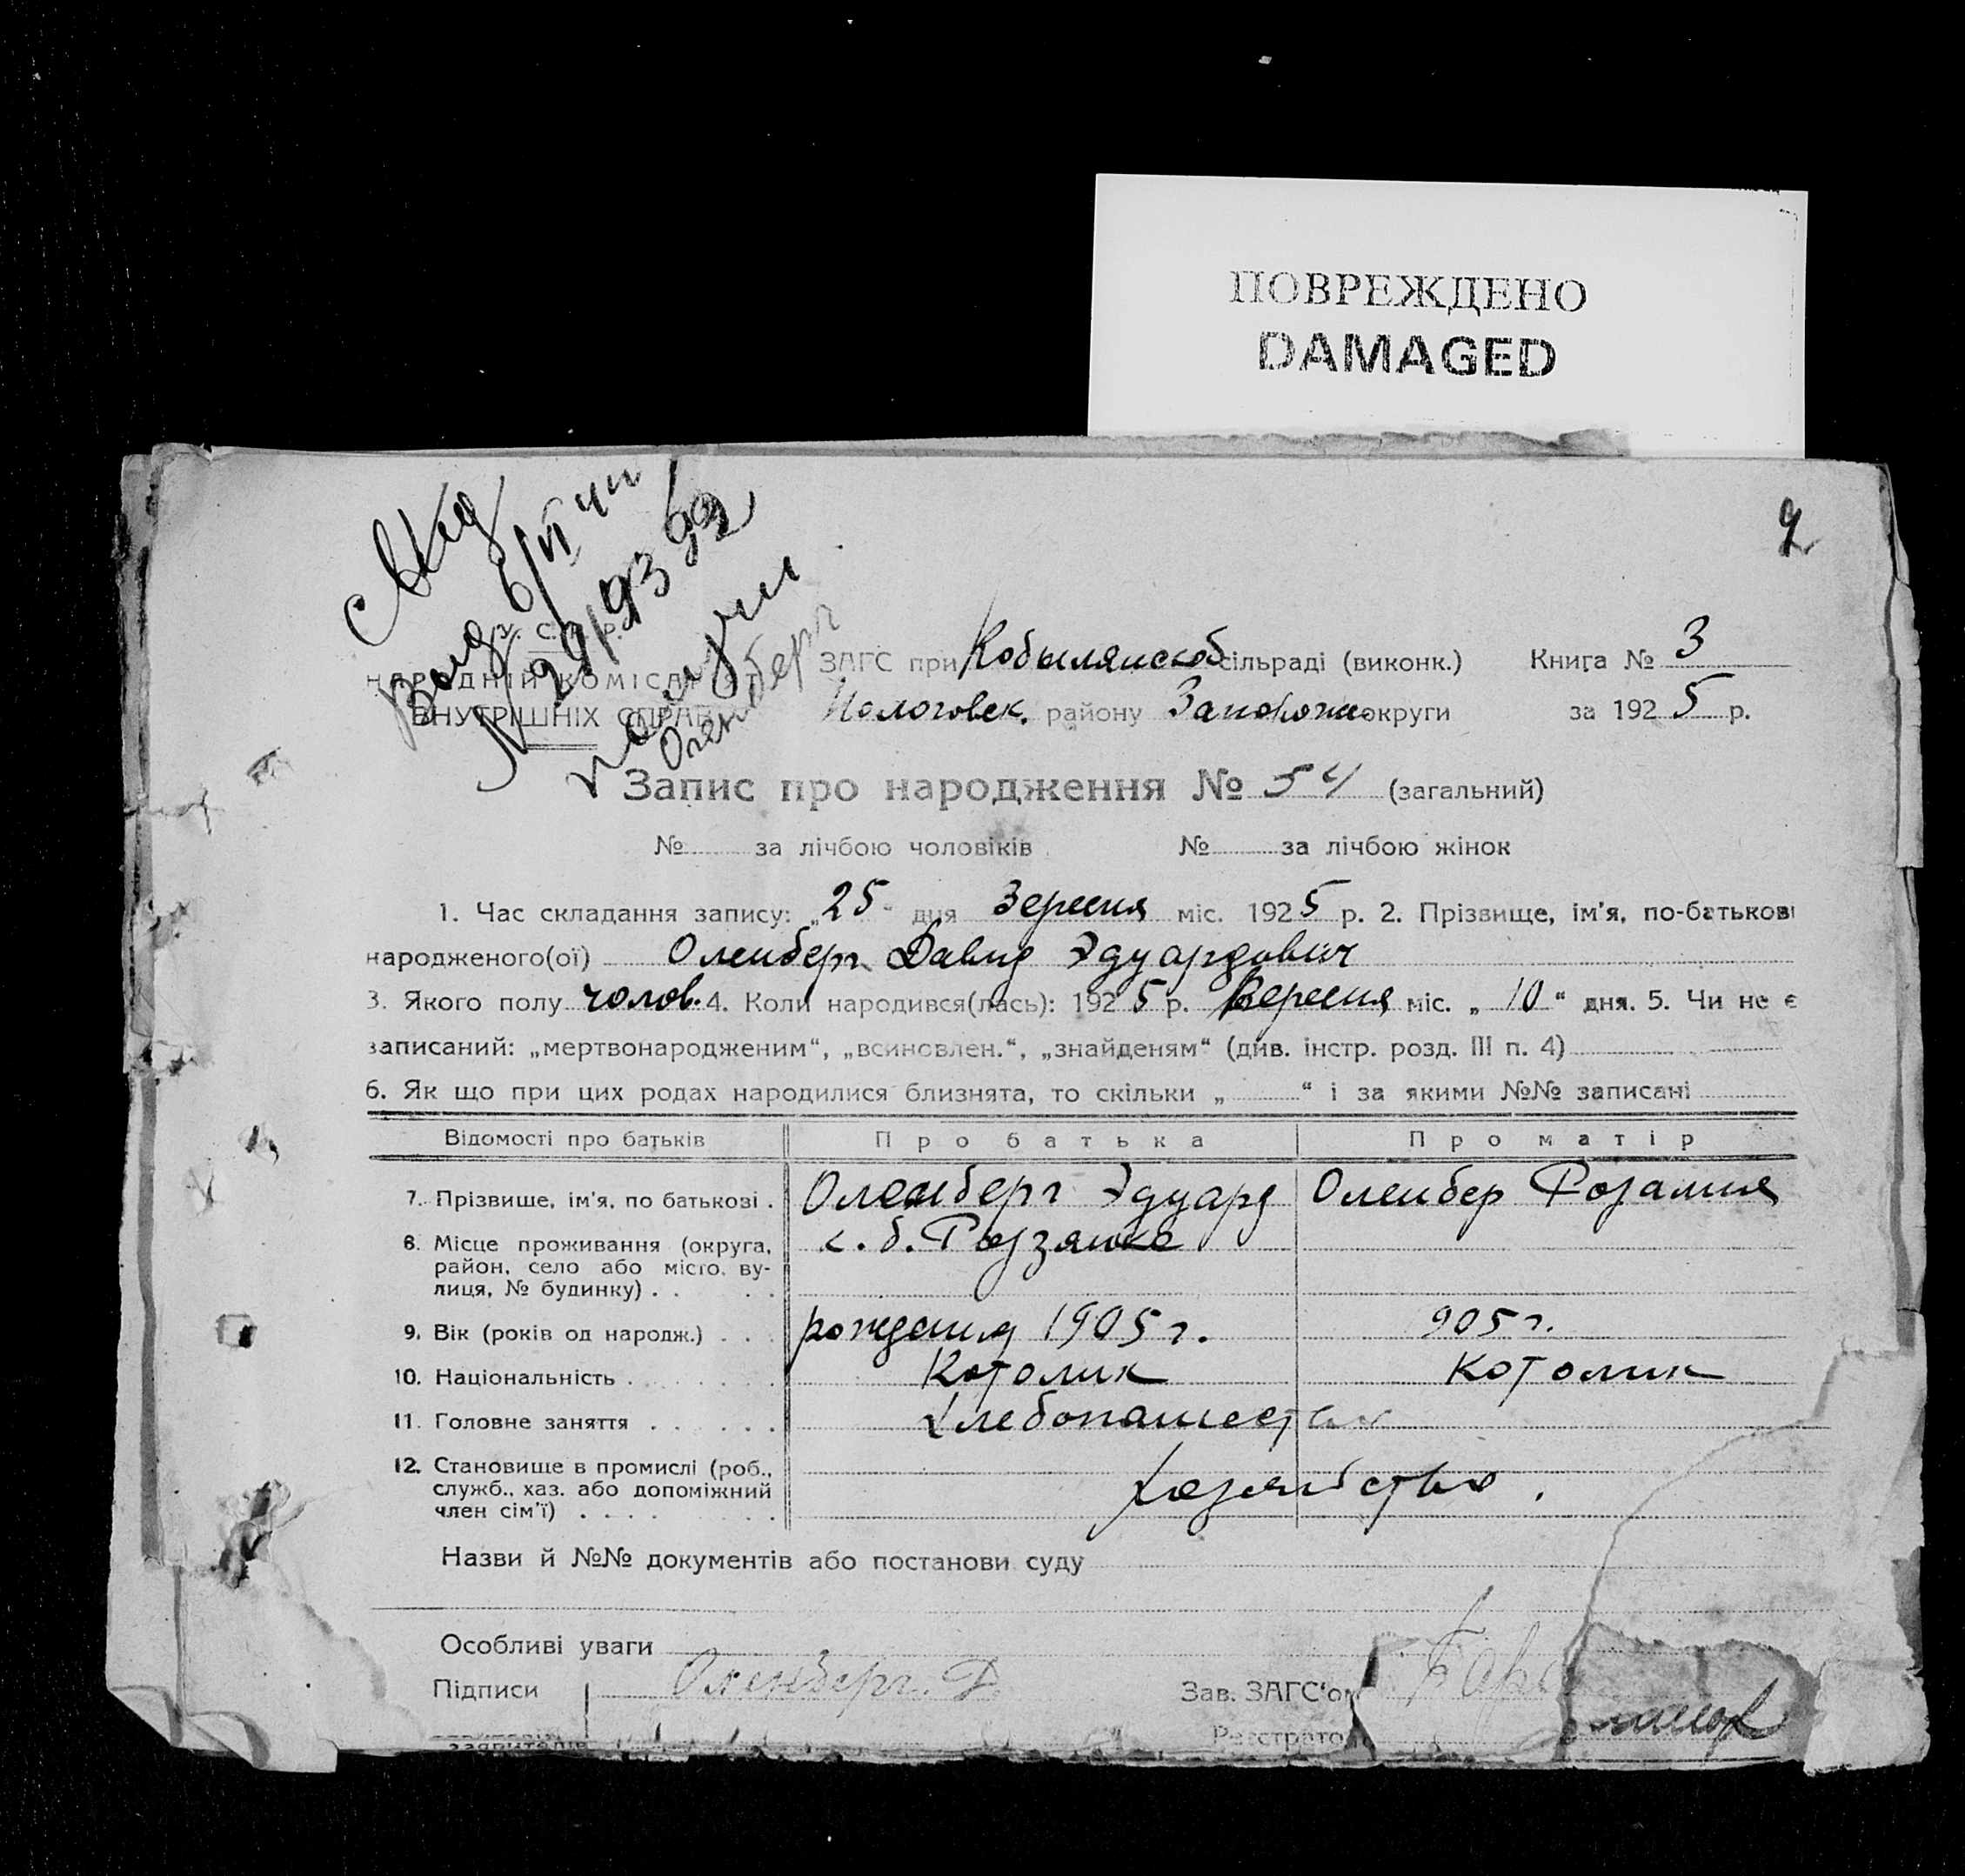 ПОВРЕЖДЕНО
DAMAGED
2
С. Р. Р.
НАРОДНІЙ КОМІСАРІЯТ
ВНУТРІШНІХ СПРАВ
Оленберг
ЗАГС при Кобылянской сільраді (виконк.) Книга № 3
Пологовск. району Запорожис округи за 1925 р.
Запис про народження № 54 (загальний)
№ за лічбою чоловіків № за лічбою жінок
1. Час складання запису: „25 дня Вересня міс. 1925 р. 2. Прізвище, ім'я, по-батькові
народженого(ої) Оленберг Давид Эдуардович
3. Якого полу чолов. 4. Коли народився(лась): 1925 р. Вересня міс. „10“ дня. 5. Чи не є
записаний: „мертвонародженим“, „всиновлен.“, „знайденям“ (див. інстр. розд. III п. 4)
6. Як що при цих родах народилися близнята, то скільки „ “ і за якими №№ записані
Відомості про батьків Про батька Про матір
7. Прізвише, ім'я, по батькові . Оленберг Эдуард Оленбер Розалия
8. Місце проживання (округа, с. б. Родзянко
район, село або місто, ву-
лиця, № будинку) . . . .
9. Вік (років од народж.) . . . рождения 1905 г. 905 г.
10. Національність . . . . . . . Католик Католик
11. Головне заняття . . . . . . Хлебопашество
12. Становище в промислі (роб.,
служб., хаз. або допоміжний Хозяйство.
член сім'ї) . . . . . . .
Назви й №№ документів або постанови суду
Особливі уваги
Підписи Оленберг. Д. Зав. ЗАГС'ом
заявителів Реєстрато